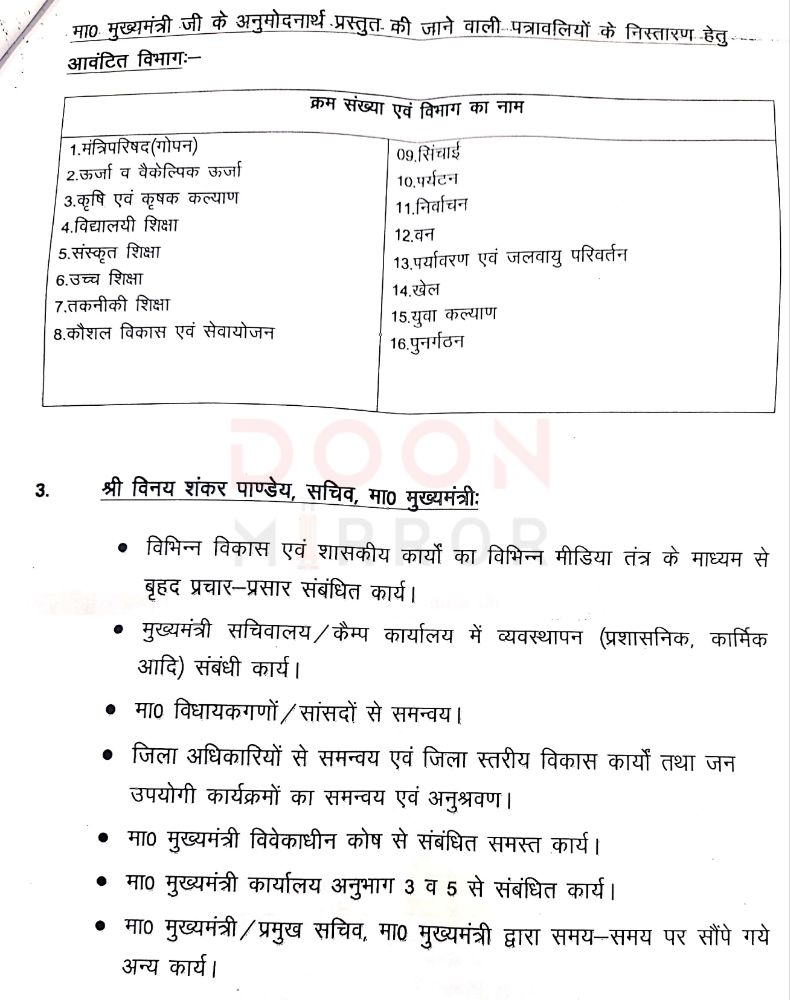 मा0 मुख्यमंत्री जी के अनुमोदनार्थ प्रस्तुत की जाने वाली पत्रावलियों के निस्तारण हेतु
आवंटित विभागः–
क्रम संख्या एवं विभाग का नाम
1.मंत्रिपरिषद(गोपन)
2.ऊर्जा व वैकेल्पिक ऊर्जा
3.कृषि एवं कृषक कल्याण
4.विद्यालयी शिक्षा
5.संस्कृत शिक्षा
6.उच्च शिक्षा
7.तकनीकी शिक्षा
8.कौशल विकास एवं सेवायोजन
09.सिंचाई
10.पर्यटन
11.निर्वाचन
12.वन
13.पर्यावरण एवं जलवायु परिवर्तन
14.खेल
15.युवा कल्याण
16.पुनर्गठन
DOON
MIRROR
3. श्री विनय शंकर पाण्डेय, सचिव, मा0 मुख्यमंत्रीः
• विभिन्न विकास एवं शासकीय कार्यों का विभिन्न मीडिया तंत्र के माध्यम से
बृहद प्रचार–प्रसार संबंधित कार्य।
• मुख्यमंत्री सचिवालय/कैम्प कार्यालय में व्यवस्थापन (प्रशासनिक, कार्मिक
आदि) संबंधी कार्य।
• मा0 विधायकगणों/सांसदों से समन्वय।
• जिला अधिकारियों से समन्वय एवं जिला स्तरीय विकास कार्यों तथा जन
उपयोगी कार्यक्रमों का समन्वय एवं अनुश्रवण।
• मा0 मुख्यमंत्री विवेकाधीन कोष से संबंधित समस्त कार्य।
• मा0 मुख्यमंत्री कार्यालय अनुभाग 3 व 5 से संबंधित कार्य।
• मा0 मुख्यमंत्री/प्रमुख सचिव, मा0 मुख्यमंत्री द्वारा समय–समय पर सौंपे गये
अन्य कार्य।